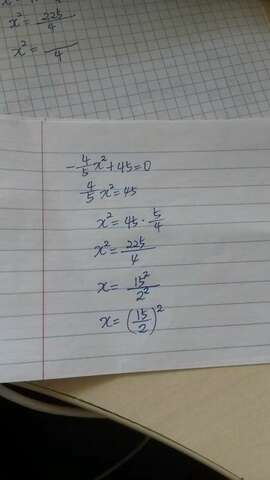 x² = 225/4
x² = /4
-4/5 x² + 45 = 0
4/5 x² = 45
x² = 45 · 5/4
x² = 225/4
x = 15²/2²
x = (15/2)²